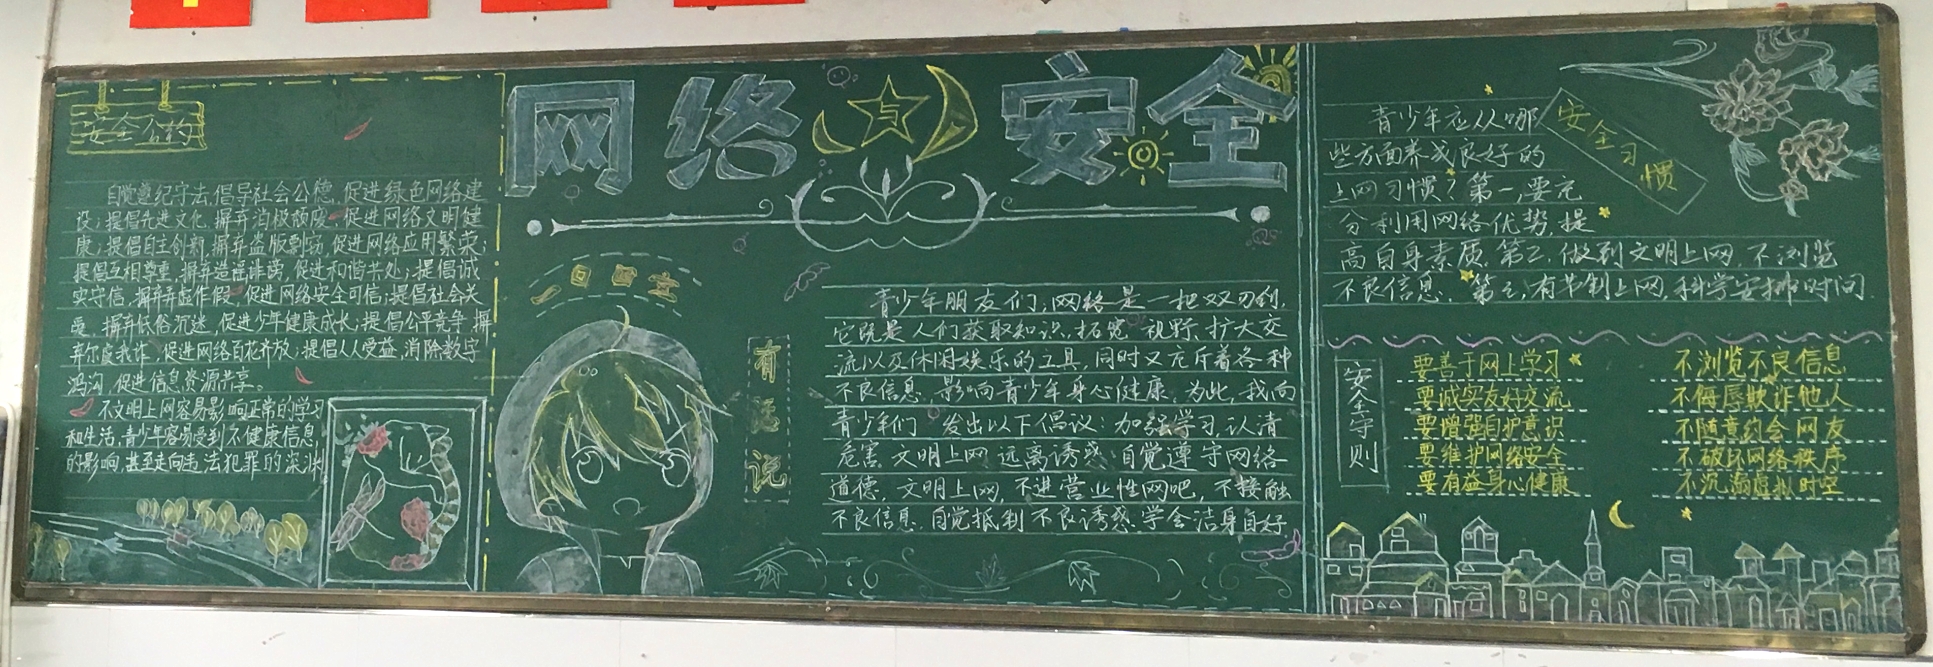 安全公约
自觉遵纪守法,倡导社会公德,促进绿色网络建
设;提倡先进文化,摒弃消极颓废,促进网络文明健
康;提倡自主创新,摒弃盗版剽窃,促进网络应用繁荣;
提倡互相尊重,摒弃造谣诽谤,促进和谐共处;提倡诚
实守信,摒弃弄虚作假,促进网络安全可信;提倡社会关
爱,摒弃低俗沉迷,促进少年健康成长;提倡公平竞争,摒
弃尔虞我诈,促进网络百花齐放;提倡人人受益,消除数字
鸿沟,促进信息资源共享。
不文明上网容易影响正常的学习
和生活,青少年容易受到不健康信息,
的影响,甚至走向违法犯罪的深渊
网络与安全
有话说
青少年朋友们,网络是一把双刃剑,
它既是人们获取知识,拓宽视野,扩大交
流以及休闲娱乐的工具,同时又充斥着各种
不良信息,影响青少年身心健康,为此,我向
青少年们发出以下倡议:加强学习,认清
危害,文明上网,远离诱惑,自觉遵守网络
道德,文明上网,不进营业性网吧,不接触
不良信息,自觉抵制不良诱惑,学会洁身自好
安全习惯
青少年应从哪
些方面养成良好的
上网习惯?第一,要充
分利用网络优势,提
高自身素质,第二,做到文明上网,不浏览
不良信息,第三,有节制上网,科学安排时间.
安全守则
要善于网上学习
要诚实友好交流
要增强自护意识
要维护网络安全
要有益身心健康
不浏览不良信息
不侮辱欺诈他人
不随意约会网友
不破坏网络秩序
不沉溺虚拟时空